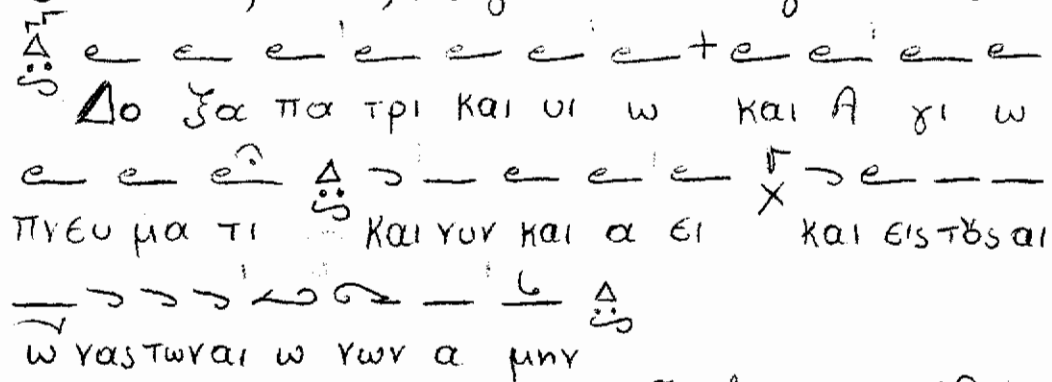 Δο ξα πα τρι και υι ω και Α γι ω
πνευ μα τι και νυν και α ει και εις τȣς αι
ω νας των αι ω νων α μην